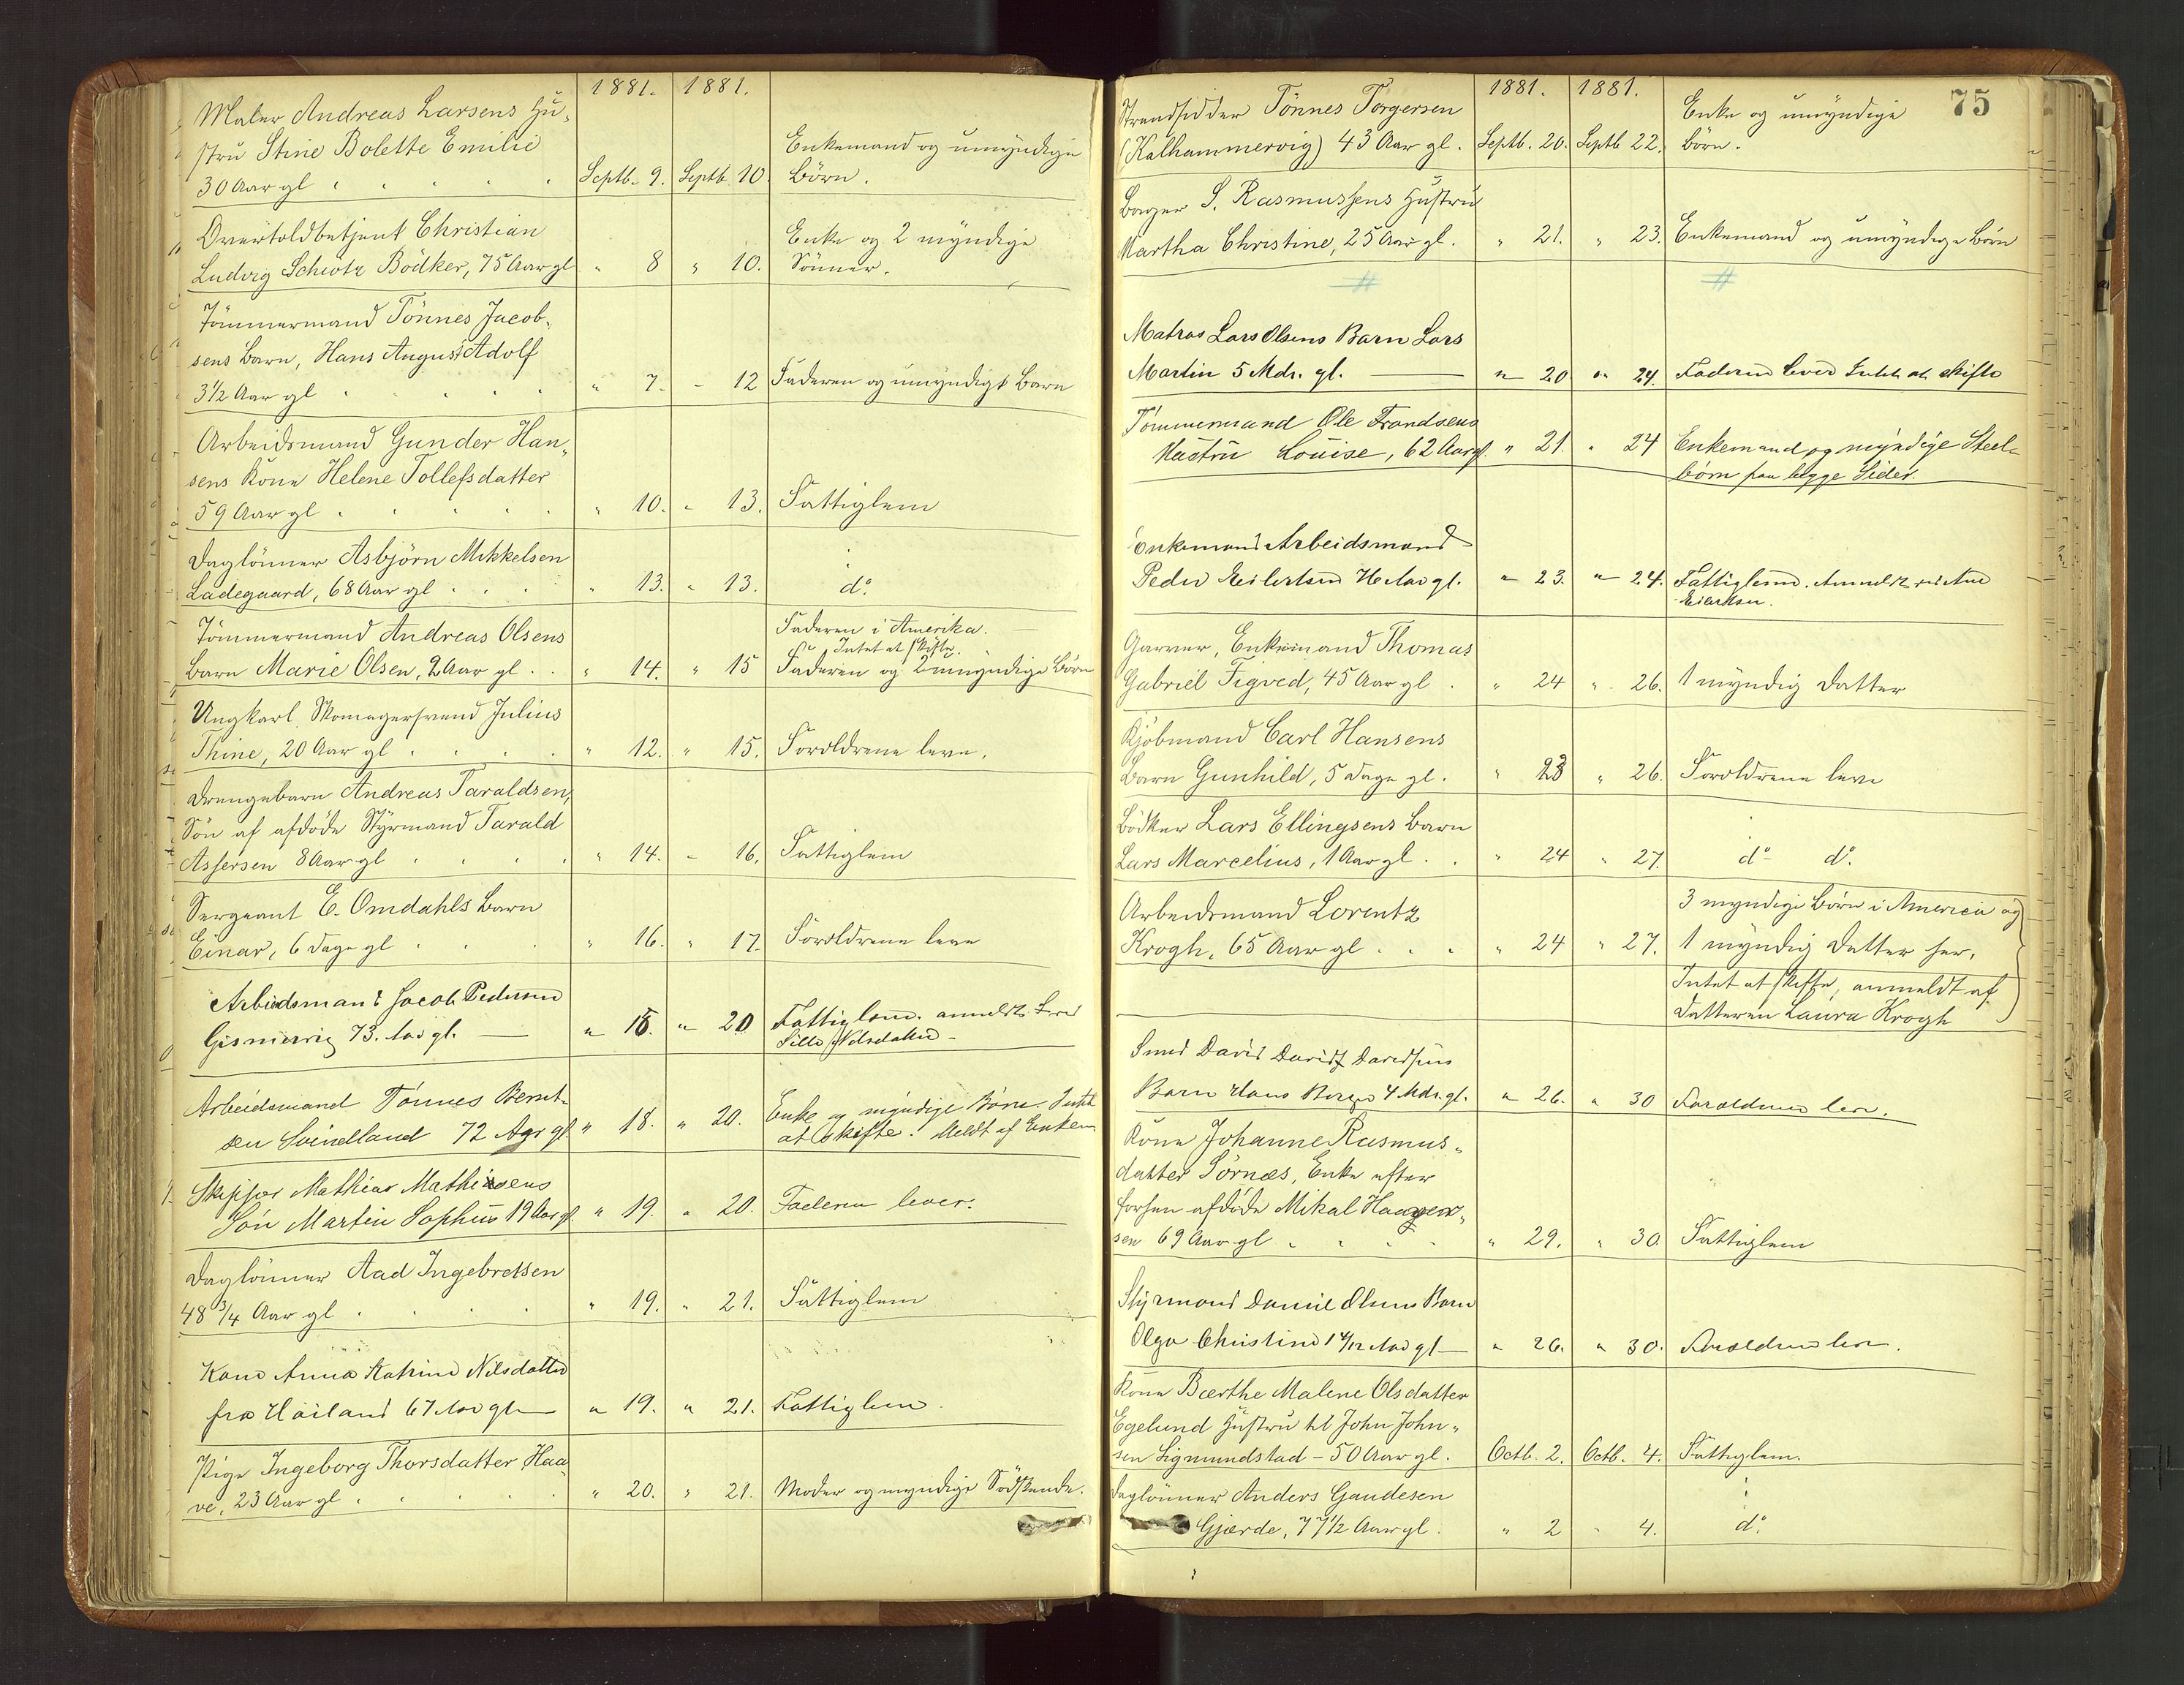 1881. 1881.
Maler Andreas Larsens Hu-
stru Stine Bolette Emilie
30 Aar gl Septb. 9. Septb 10. Enkemand og umyndige
Børn.
Overtoldbetjent Christian
Ludvig Schiøtz Bödker, 75 Aar gl " 8 " 10. Enke og 2 myndige
Sönner.
Tömmermand Tönnes Jacob-
sens Barn, Hans August Adolf
3 1/2 Aar gl " 7. - 12 Faderen og umyndigt Barn
Arbeidsmand Gunder Han-
sens Kone Helene Tollefsdatter
59 Aar gl " 10. " 13. Fattiglem
Daglönner Asbjörn Mikkelsen
Ladegaard, 68 Aar gl " 13. " 13. do.
Tömmermand Andreas Olsens
Barn Marie Olsen, 2 Aar gl. " 14. " 15 Faderen i Amerika.
Intet at skifte.
Faderen og 2 umyndige Börn
Ungkarl Skomagersvend Julius
Thine, 20 Aar gl " 12. " 15. Forældrene leve.
Drengebarn Andreas Taraldsen,
Sön af afdöde Styrmand Tarald
Assersen 8 Aar gl " 14. - 16. Fattiglem
Sergeant E. Omdahls Barn
Einar, 6 Dage gl " 16. " 17. Forældrene leve
Arbeidsmand Jacob Pedersen
Gismervig 73. Aar gl. " 18. " 20 Fattiglem. anmeldt
Sille Nilsdatter
Arbeidsmand Tönnes Bernt-
sen Svindland 72 Aar gl " 18. " 20. Enke og myndige Börn. Intet
at skifte. Meldt af Enken.
Skipper Mathias Mathisens
Sön Martin Sophus 19 Aar gl " 19. " 20. Faderen lever.
Daglönner Aad Ingebretsen
48 3/4 Aar gl " 19. " 21. Fattiglem
Kone Anna Katrine Nilsdatter
fra Höiland 67 Aar gl " 19. " 21. Fattiglem.
Pige Ingeborg Thorsdatter Haa-
ve, 23 Aar gl " 20. " 21. Moder og myndige Södskende.
75
1881. 1881.
Strandsidder Tönnes Torgersen
(Kalhammervig) 43 Aar gl. Septb. 20. Septb 22. Enke og umyndige
Börn.
Bager S. Rasmussens Hustru
Martha Christine, 25 Aar gl. " 21. " 23. Enkemand og umyndige Börn
Matros Lars Olsens Barn Lars
Martin 5 Mdr. gl. " 20 " 24. Faderen lever Intet at skifte
Tömmermand Ole Frandsens
Hustru Louise, 62 Aar gl. " 21. " 24 Enkemand og myndige Steel-
börn paa begge Sider.
Enkemand Arbeidsmand
Peder Eilertsen Aar gl. " 23. " 24. Fattiglem. Anmeldt
Eilertsen.
Garver, Enkemand Thomas
Gabriel Figved, 45 Aar gl. " 24 " 26. 1 myndig Datter
Kjöbmand Carl Hansens
Barn Gunhild, 5 Dage gl. " 23 " 26. Forældrene leve
Bödker Lars Ellingsens Barn
Lars Marcelius, 1 Aar gl. " 24 " 27. do do.
Arbeidsmand Lorentz
Krogh, 65 Aar gl " 24 " 27. 3 myndige Börn i America og
1 myndig Datter her.
Intet at skifte, anmeldt af
Datteren Laura Krogh
Smed David Davidsens
Barn Hans Berge 4 Mdr. gl. " 26. " 30 Forældrene leve.
Kone Johanne Rasmus-
datter Sörnæs, Enke efter
forhen afdöde Mikal Haagen-
sen 69 Aar gl " 29. " 30. Fattiglem
Styrmand Daniel Olsens Barn
Olga Christine 1 4/12 Aar gl " 26. " 30. Forældrene leve.
Kone Bærthe Malene Olsdatter
Egelund Hustru til John John-
sen Sigmundstad - 50 Aar gl. Octb. 2. Octb. 4. Fattiglem.
Daglönner Anders Gaudesen
Gjærde, 77 1/2 Aar gl. " 2 " 4. do.